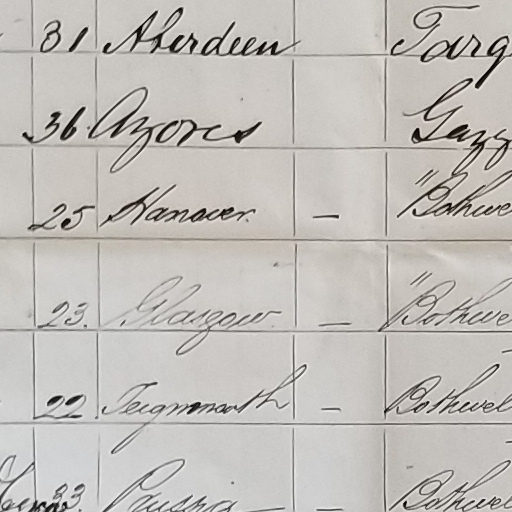 31 Aberdeen Targ
36 Azores Gazz
25 Hanover. — "Bothwe
23. Glasgow. — "Bothwe
22 Teignmouth — Bothwel
33. Prussia — Bothwel